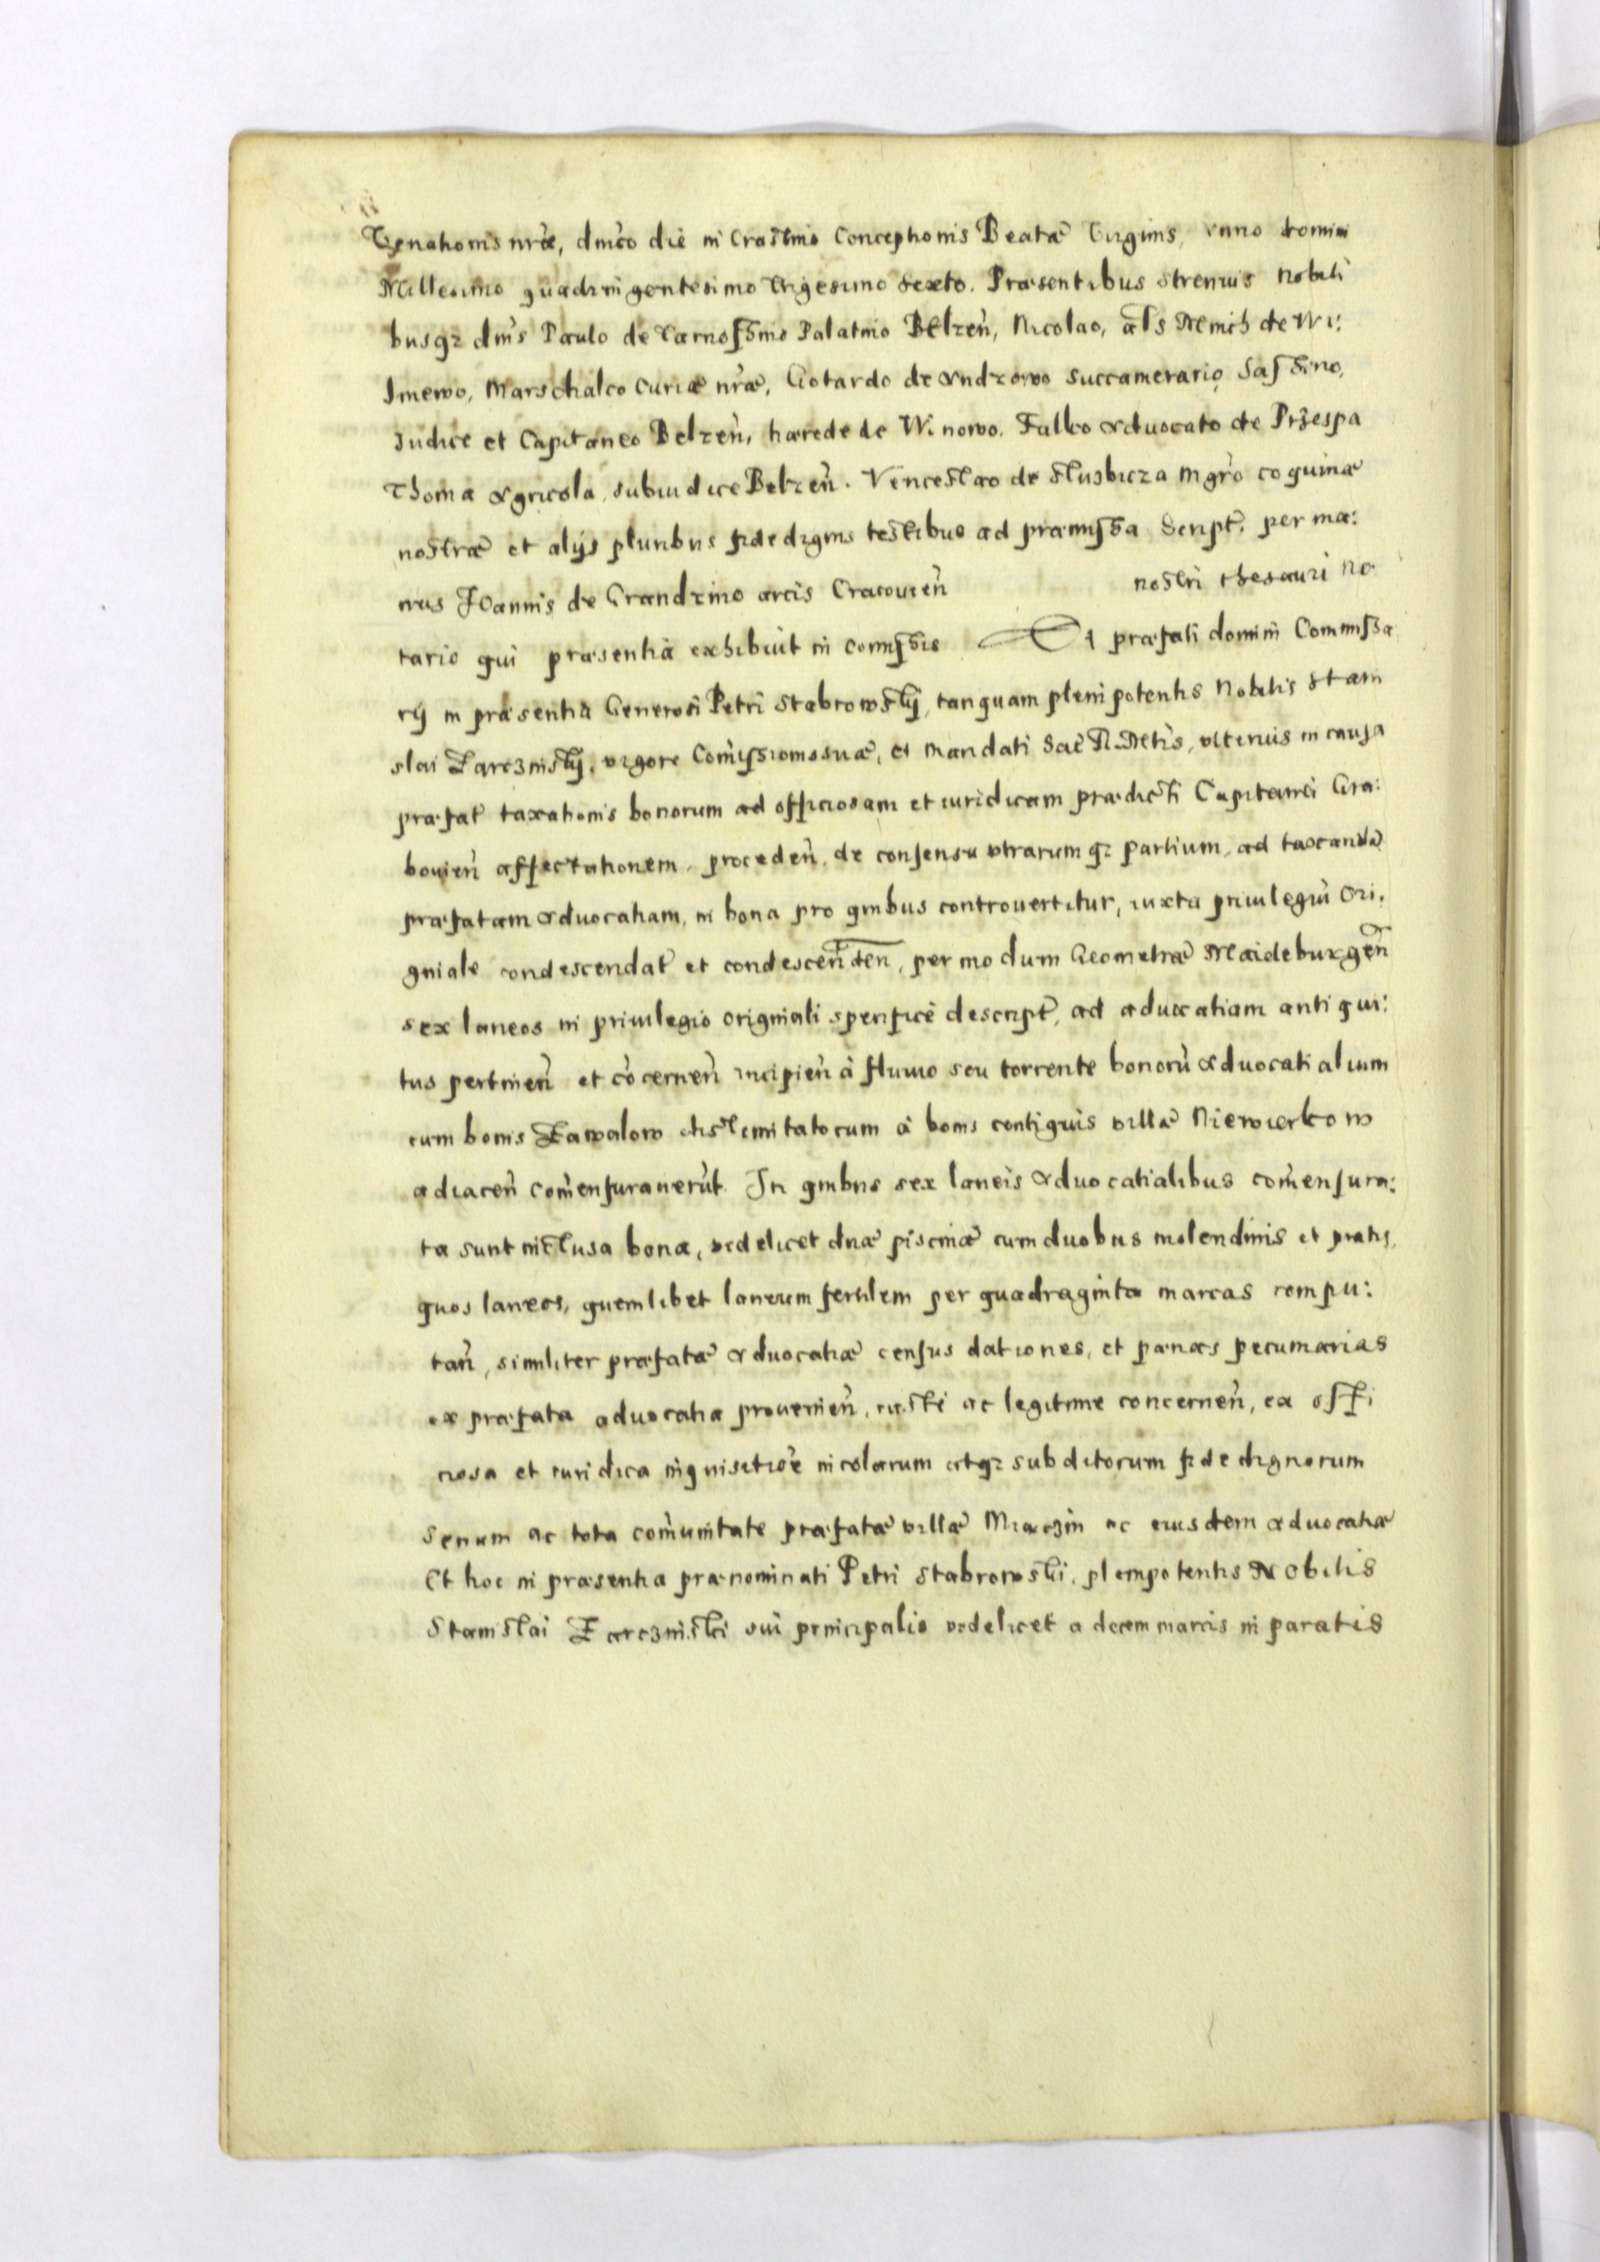 Venationis nr̃æ, dnico die in Crastino Conceptionis Beatæ Virginis, Anno domini
Millesimo quadringentesimo Trigesimo Sexto. Præsentibus Strenuis Nobili
busqz dnis Paulo de Tarnossino Palatino Belzen̄, Nicolao, als Nemich de Wi:
Jmewo, Marschalco Curiæ nr̃æ, Gotardo de Andzowo Succamerario, Sassino,
Judice et Capitaneo Belzen̄, hærede de Winowo. Falko Aduocato de Przespa
Thoma Agricola, subiudice Belzen̄. Venceslao de Slusbicza Mgrõ coquinæ
nostræ et alijs pluribus fide dignis testibus ad præmissa Script. per ma:
nus Joannis de Grandzino arcis Cracouien̄ nostri thesauri no
tario qui præsentiã exhibuit in comissis Et præfati domini Commissa
rij in præsentia Generosi Petri Stabrowskij, tanquam plenipotentis Nobilis Stani
slai Zarczniskij. vigore Comissionis suæ, et Mandati Sac̄ R. Mtis, vlterius in causa
præfat̄ taxationis bonorum ad officiosam et iuridicam prædicti Capitanei Gra:
bouien̄ affectationem, proceden̄, de consensu vtrarumqz partium, ad taxandã
præfatam Aduocatiam, in bona pro quibus controuertitur, iuxta priuilegiũ Ori:
giniale condescendat̄ et condescen̄den̄, per modum Geometræ Maideburgen̄
sex laneos in priuilegio originiali specificè descript̄, ad aduocatiam antiqui:
tus pertinen̄ et cõcernen̄ incipien̄ à fluuio seu torrente bonorũ Aduocatialium
cum bonis Zawalow distlimitatorum à bonis contiguis villæ Niewierkow
adiacen̄ comẽnsurauerũt. In quibus sex laneis Aduocatialibus comẽnsura:
ta sunt inclusa bona, videlicet duæ piscinæ cum duobus molendinis et pratis,
quos laneos, quemlibet laneum fertilem per quadraginta marcas compu:
tan̄, similiter præfatæ Aduocatiæ census dationes, et pænas pecuniarias
ex præfata aduocatia prouenien̄, iustè ac legitime concernen̄, ex offi
ciosa et iuridica inquisitiõe incolarum atqz subditorum fide dignorum
Senum ac tota comunitate præfatæ villæ Miaczin ac eiusdem Aduocatiæ
Et hoc in præsentia prænominati Petri Stabrowski. plenipotentis Nobilis
Stanislai Zarczniski sui principalis videlicet a decem marcis in paratis